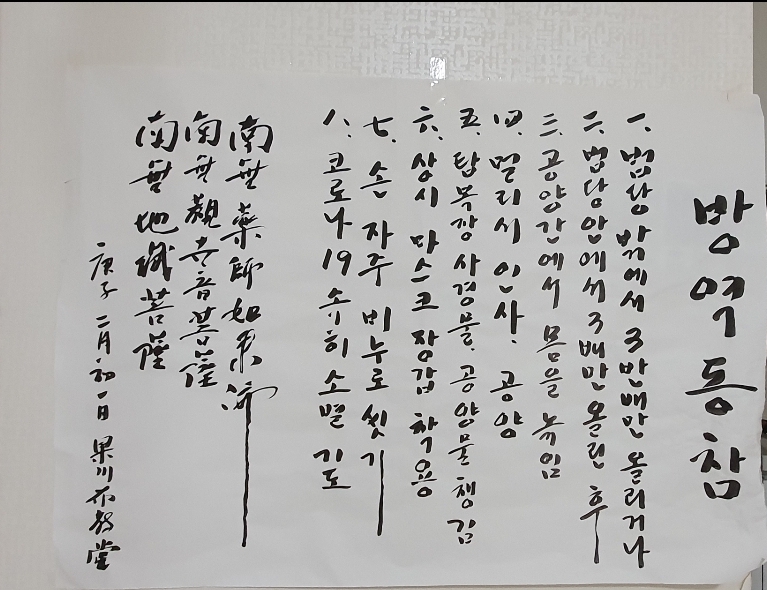 방역동참
一. 법당 밖에서 3반배만 올리거나
二. 법당안에서 3배만 올린 후
三. 공양간에서 몸을 녹임
四. 멀리서 인사. 공양
五. 탑목장 사경물. 공양물 챙김
六. 상시 마스크 장갑 착용
七. 손 자주 비누로 씻기
八. 코로나 19 속히 소멸 기도
南無藥師如來佛
南無觀世音菩薩
南無地藏菩薩
庚子 二月初一日 果川 布敎堂